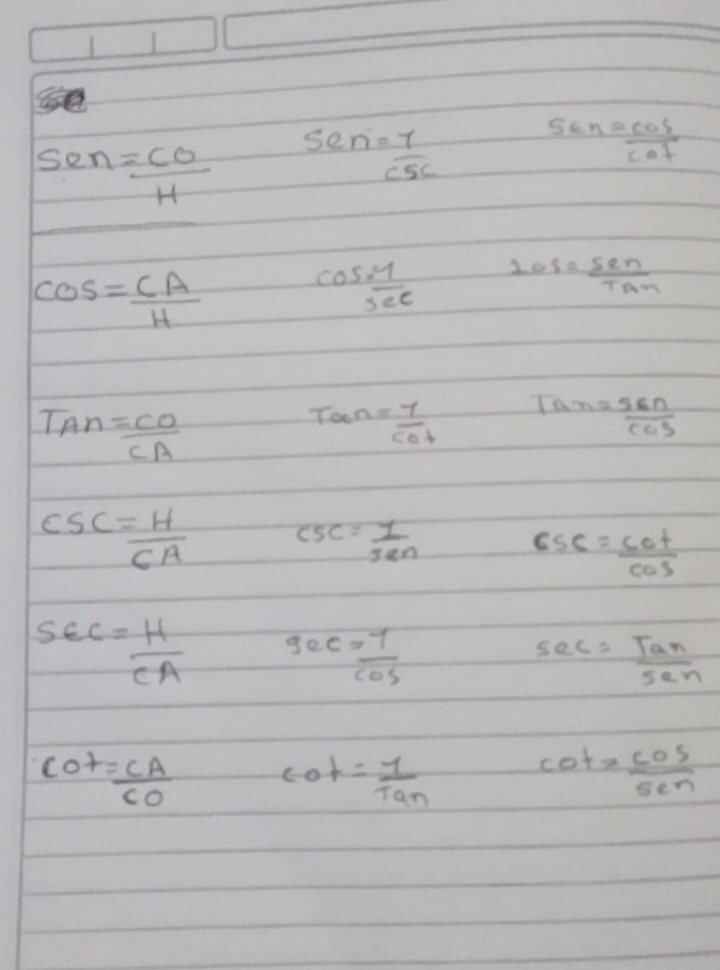 Sen = CO/H Sen = 1/csc Sen = cos/cot
COS = CA/H cos = 1/sec cos = sen/TAn
TAn = CO/CA Tan = 1/cot Tan = sen/cos
CSC = H/CA csc = 1/sen csc = cot/cos
SEC = H/CA sec = 1/cos sec = Tan/sen
cot = CA/CO cot = 1/Tan cot = cos/sen